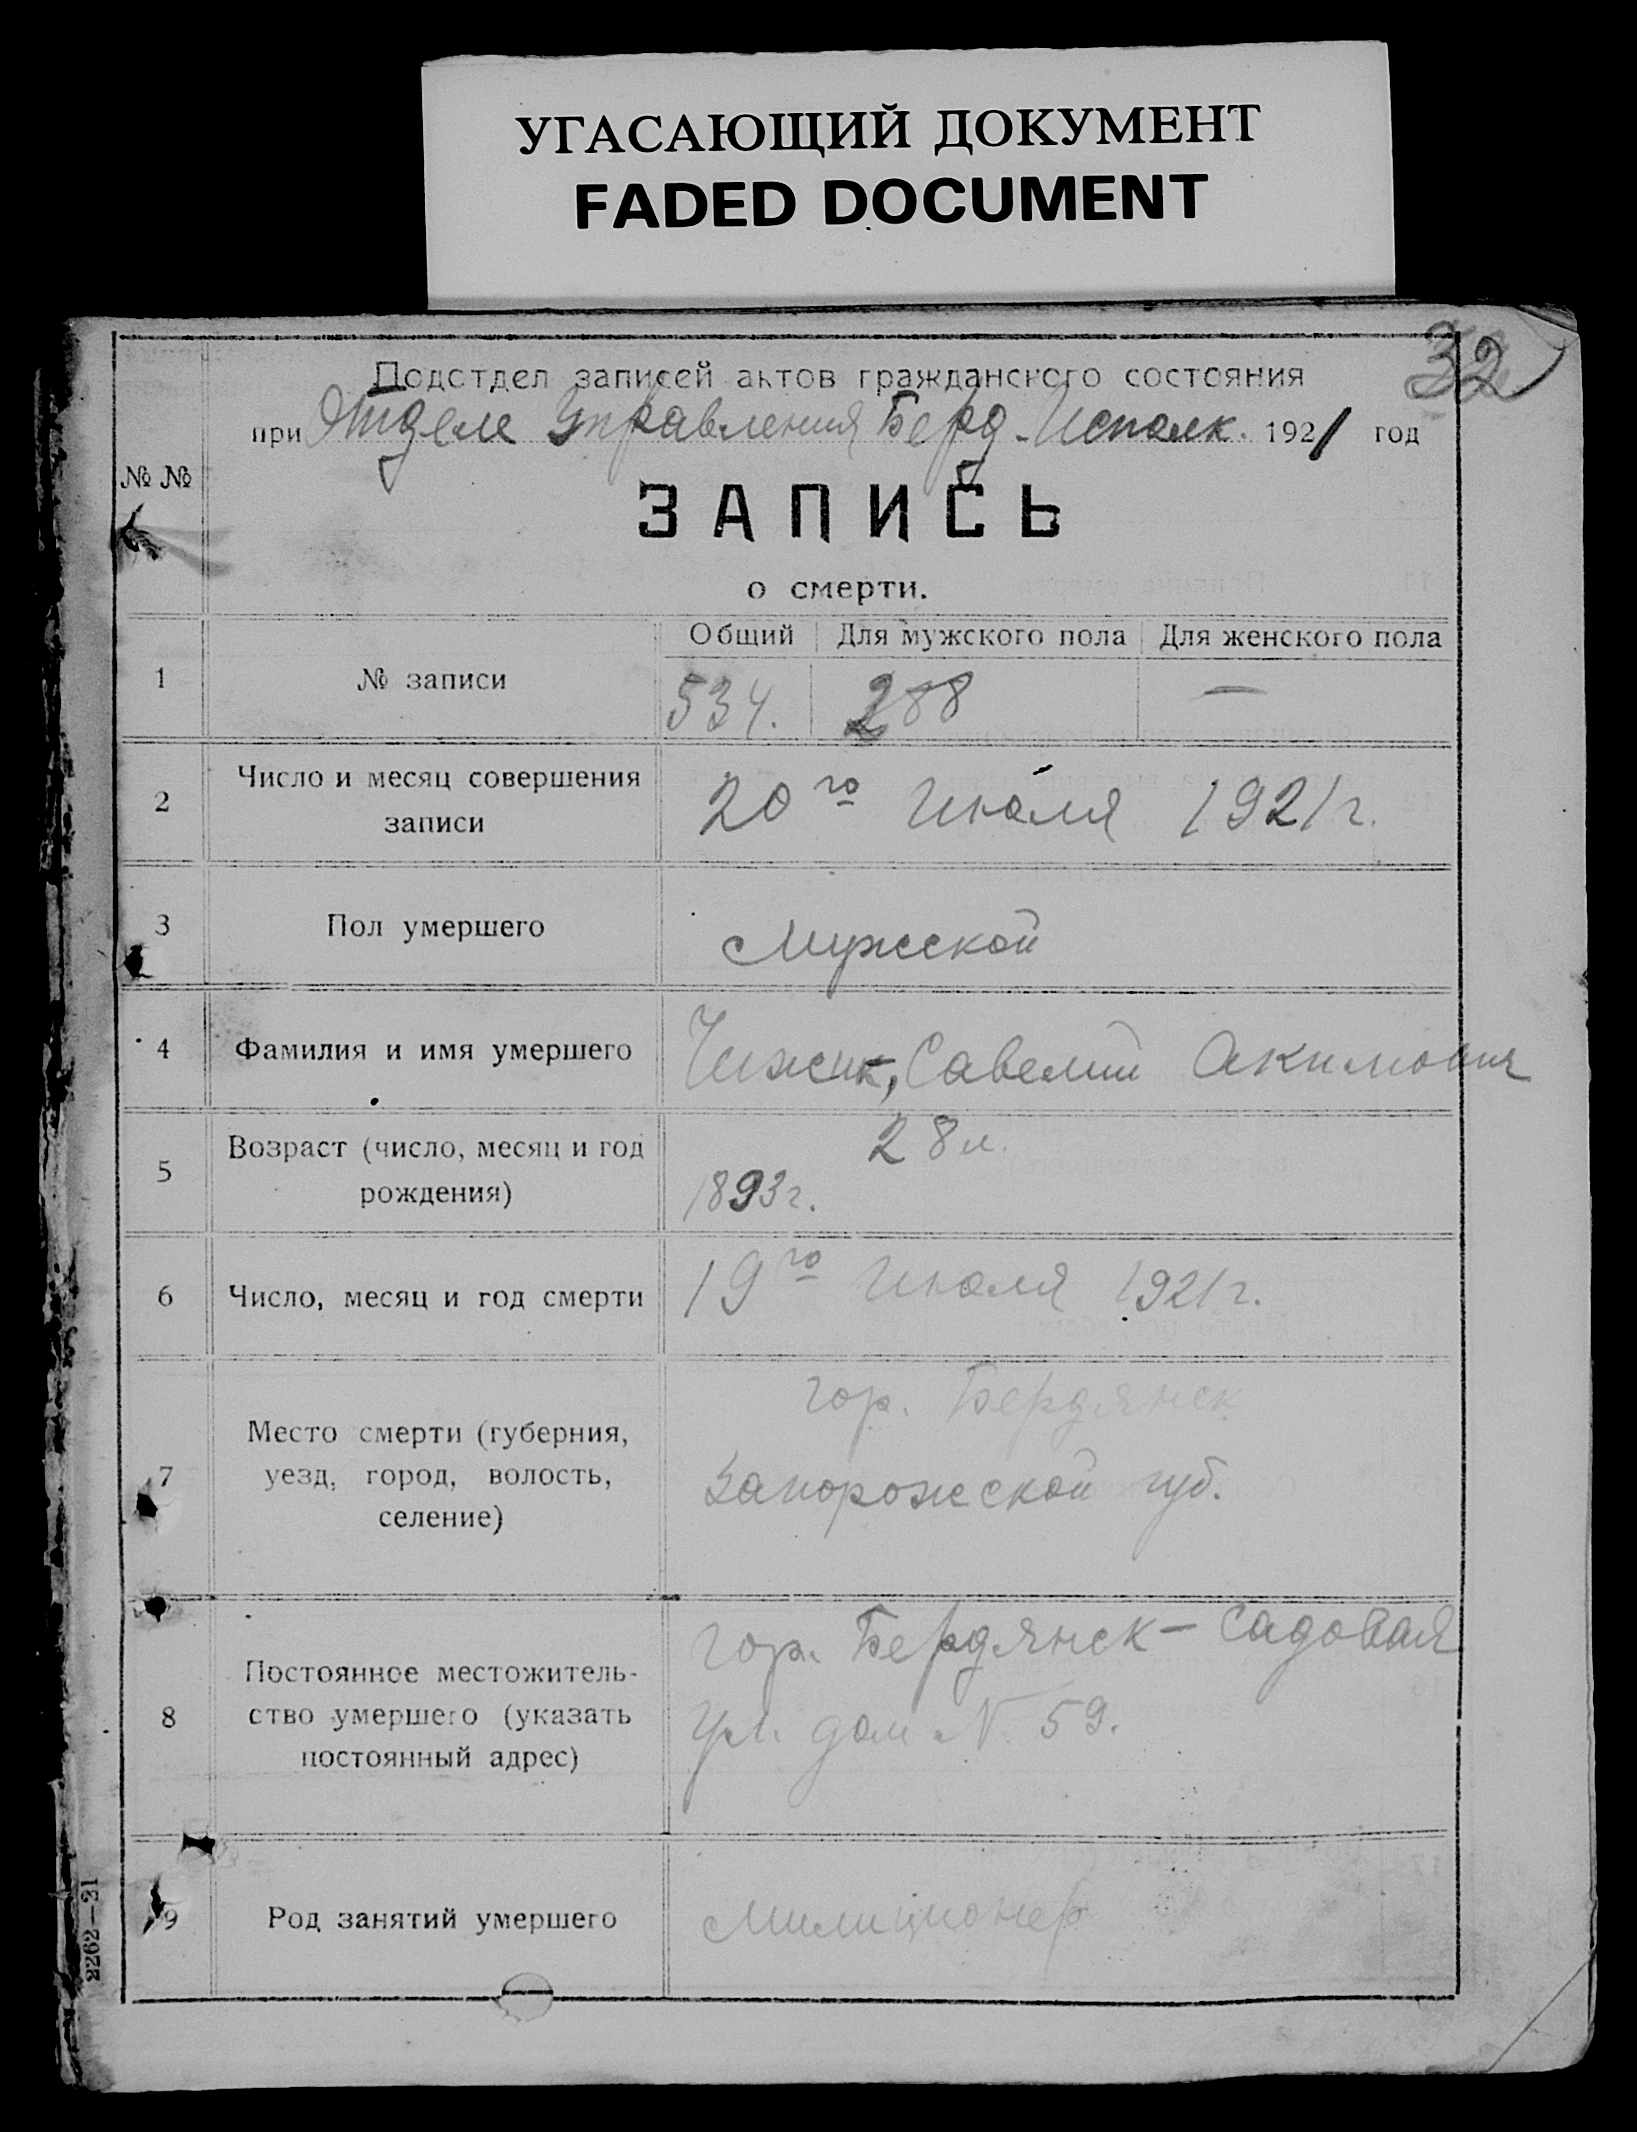 УГАСАЮЩИЙ ДОКУМЕНТ
FADED DOCUMENT
32
Подотдел записей актов гражданского состояния
при Отделе Управления Берд. Исполк. 1921 год
№ №
ЗАПИСЬ
о смерти.
Общий Для мужского пола Для женского пола
1 № записи 534. 288 —
2 Число и месяц совершения
записи
20го Июля 1921 г.
3 Пол умершего Мужской
4 Фамилия и имя умершего Чижик, Савелий Акимович
5 Возраст (число, месяц и год
рождения)
28 л.
1893 г.
6 Число, месяц и год смерти 19го Июля 1921 г.
7 Место смерти (губерния,
уезд, город, волость,
селение)
гор. Бердянск
Запорожской губ.
8 Постоянное местожитель-
ство умершего (указать
постоянный адрес)
гор. Бердянск — Садовая
ул. дом № 59.
9 Род занятий умершего Милиционер
2262—21